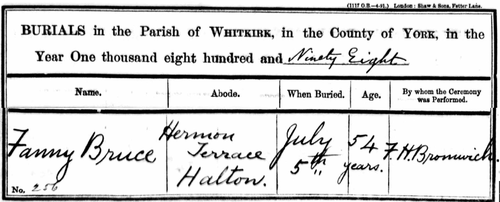 (1117 O.B.—4-91.) London: Shaw & Sons, Fetter Lane.
BURIALS in the Parish of WHITKIRK, in the County of YORK, in the
Year One thousand eight hundred and Ninety Eight.
Name. Abode. When Buried. Age. By whom the Ceremony was Performed.
Fanny Bruce
No. 256
Hermon
Terrace
Halton.
July
5th
54
years.
F. H. Bromwich.